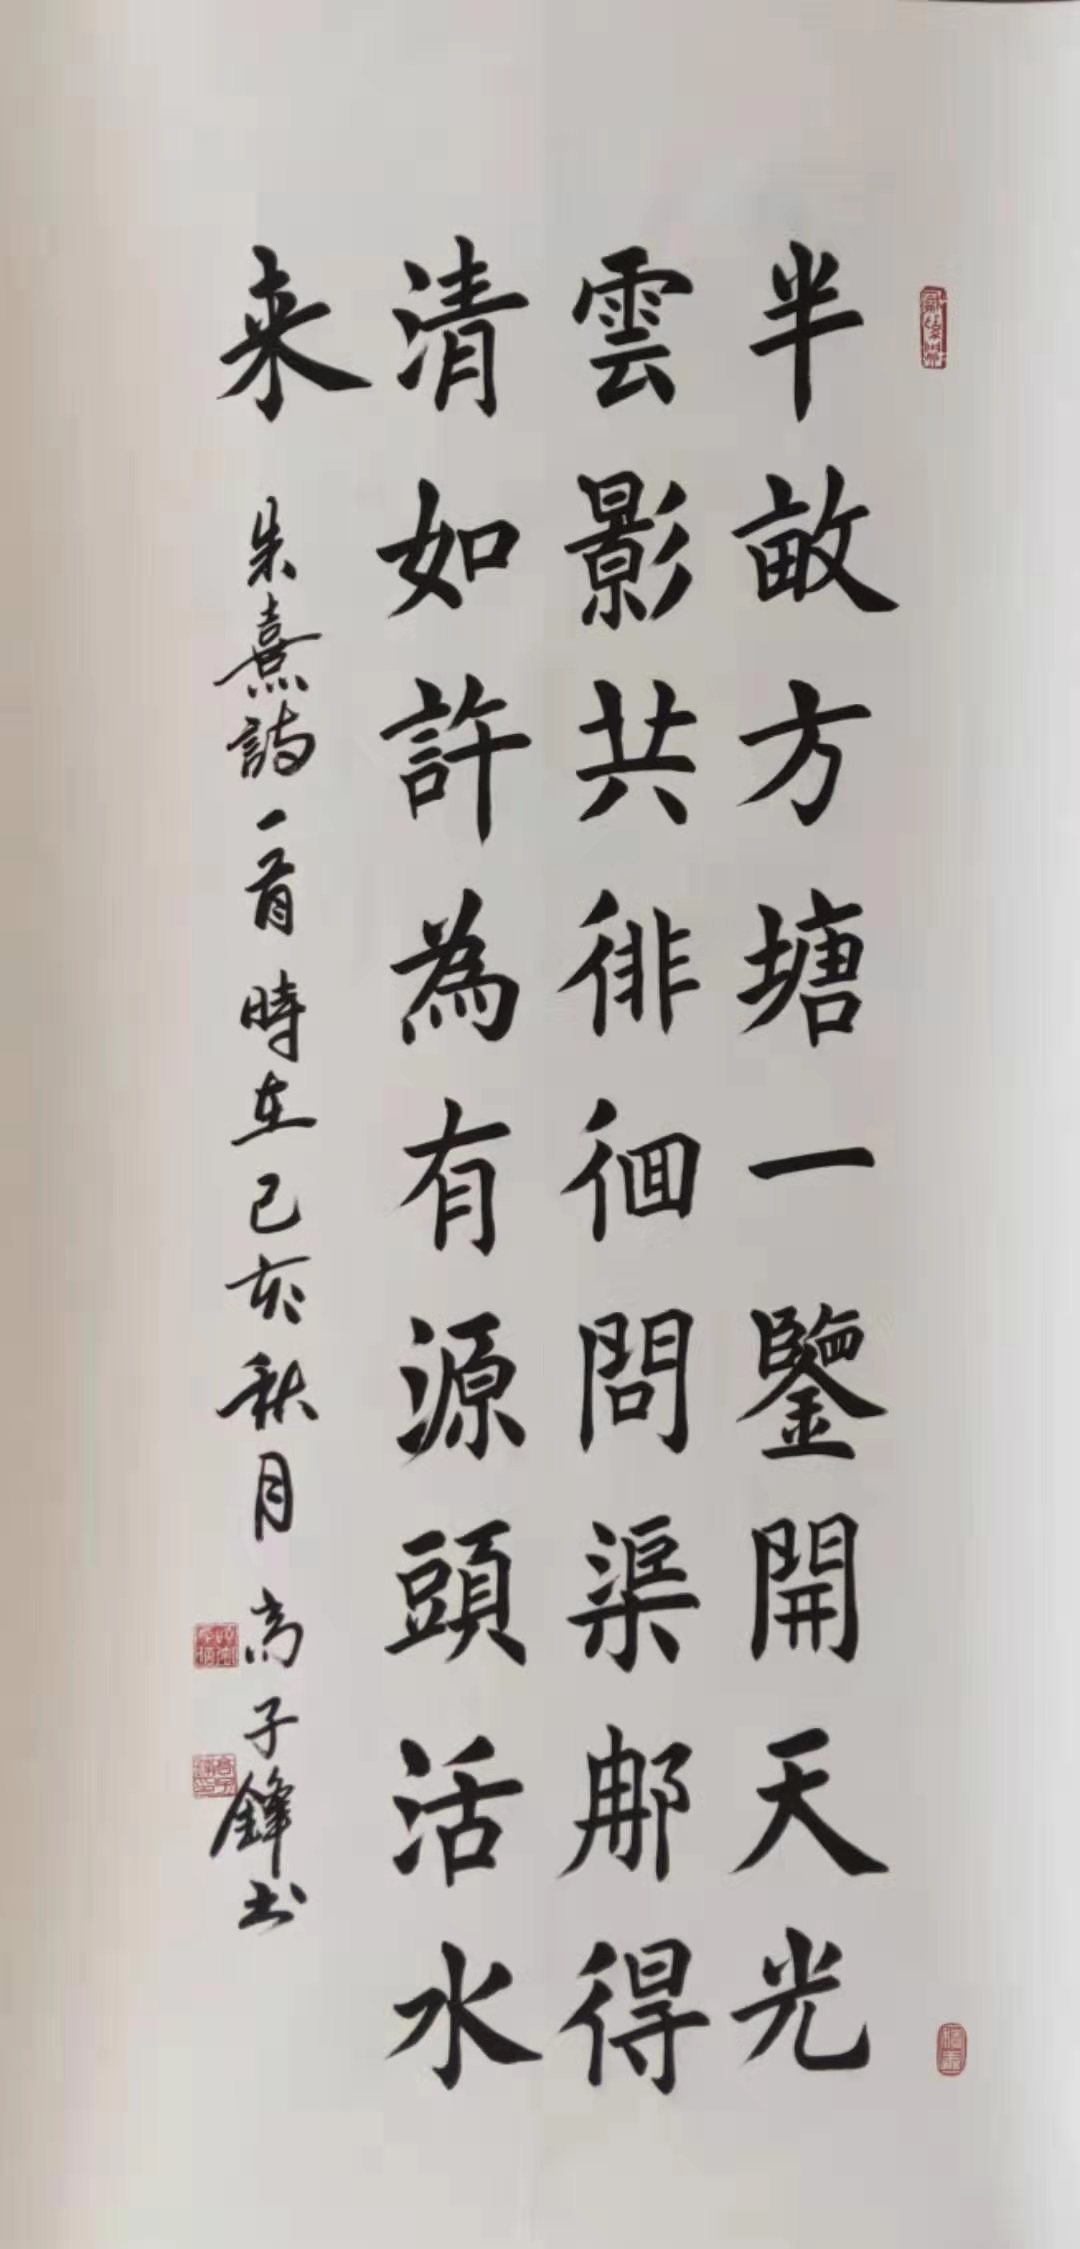 半畝方塘一鑒開天光
雲影共徘徊問渠那得
清如許為有源頭活水
来
朱熹詩一首時在己亥秋月高子鋒书